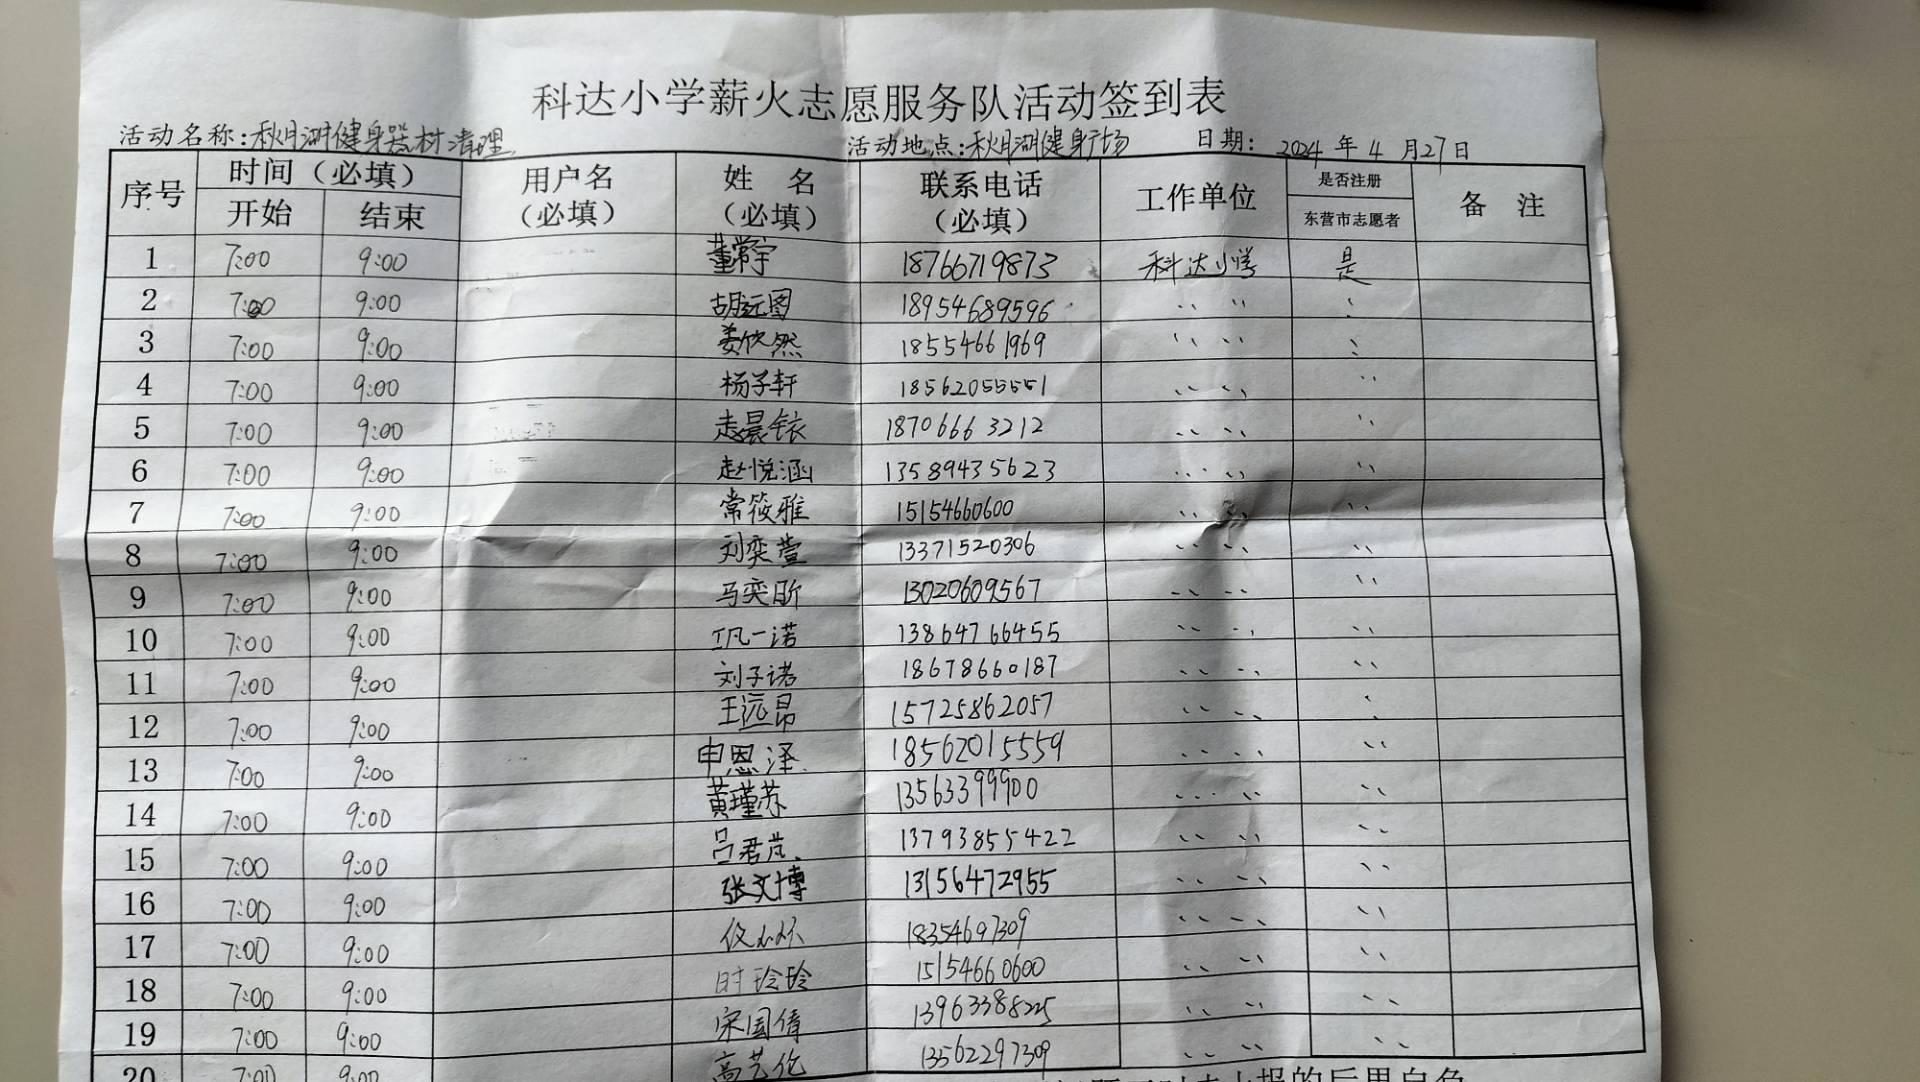 科达小学薪火志愿服务队活动签到表
活动名称:秋月湖健身器材清理 活动地点:秋月湖健身广场 日期: 2024 年 4 月 27 日
序号 时间（必填） 用户名（必填） 姓 名（必填） 联系电话（必填） 工作单位 是否注册 东营市志愿者 备 注
开始 结束
1 7:00 9:00 董常宇 18766719873 科达小学 是
2 7:00 9:00 胡远图 18954689596 〃 〃 〃
3 7:00 9:00 姜欣然 18554661969 〃 〃 〃
4 7:00 9:00 杨子轩 18562055551 〃 〃 〃
5 7:00 9:00 18706663212 〃 〃 〃
6 7:00 9:00 赵悦涵 13589435623 〃 〃 〃
7 7:00 9:00 常筱雅 15154660600 〃 〃 〃
8 7:00 9:00 刘奕萱 13371520306 〃 〃 〃
9 7:00 9:00 马奕昕 13020609567 〃 〃 〃
10 7:00 9:00 巩一诺 13864766455 〃 〃 〃
11 7:00 9:00 刘子诺 18678660187 〃 〃 〃
12 7:00 9:00 王远昂 15725862057 〃 〃 〃
13 7:00 9:00 申恩泽 18562015559 〃 〃 〃
14 7:00 9:00 黄瑾苏 13563399900 〃 〃 〃
15 7:00 9:00 吕君岚 13793855422 〃 〃 〃
16 7:00 9:00 张文博 13156472955 〃 〃 〃
17 7:00 9:00 18354697309 〃 〃 〃
18 7:00 9:00 时玲玲 15154660600 〃 〃 〃
19 7:00 9:00 宋国倩 13963388225 〃 〃 〃
20 7:00 9:00 高艺伦 13562297309 〃 〃 〃